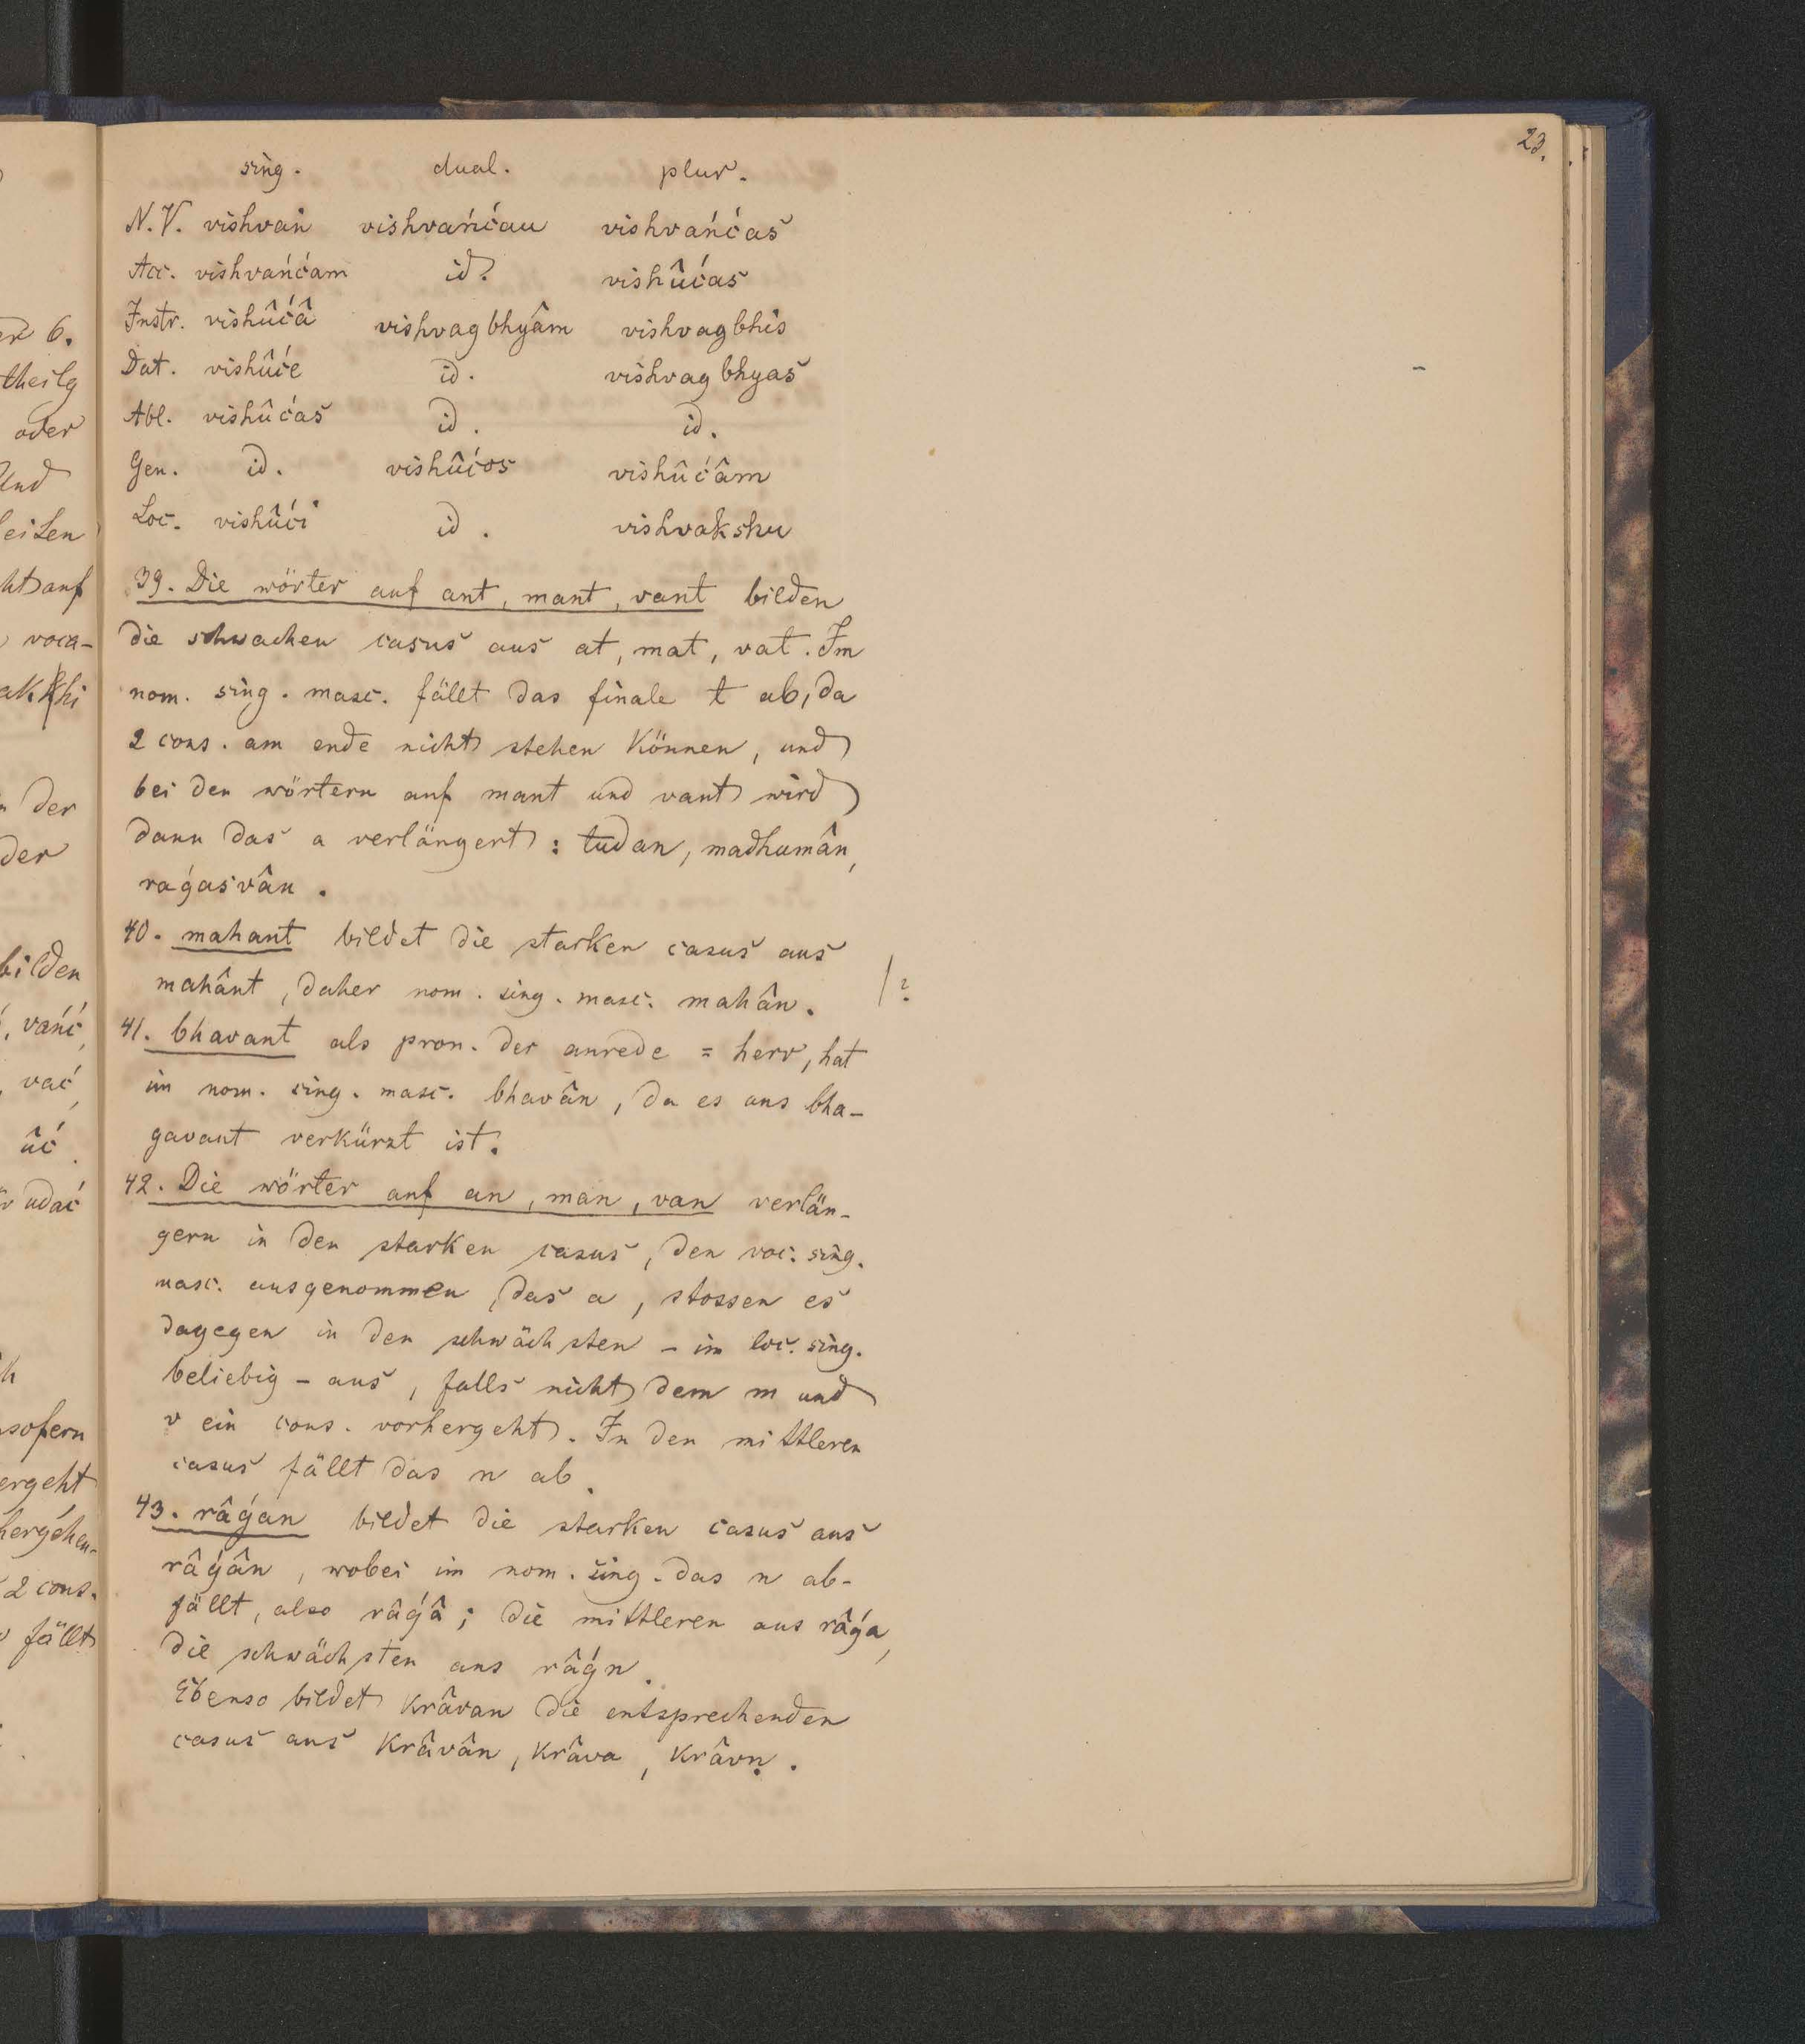 23.
sing. dual. plur.
N.V. vishvań vishvańćau vishvańćas
Acc. vishvańćam id. vishûćas
Instr. vishûćâ vishvagbhyâm vishvagbhis
Dat. vishûće id. vishvagbhyas
Abl. vishûćas id. id.
Gen. id. vishûćos vishûćâm
Loc. vishûći id. vishvakshu
39. Die wörter auf ant, mant, vant bilden
die schwachen casus aus at, mat, vat. Im
nom. sing. masc. fällt das finale t ab, da
2 cons. am ende nicht stehen können, und
bei den wörtern auf mant und vant wird
dann das a verlängert: tudan, madhumân,
raǵasvân.
40. mahant bildet die starken casus aus
mahânt, daher nom. sing. masc. mahân. /?
41. bhavant als pron. der anrede = herr, hat
im nom. sing. masc. bhavân, da es aus bha-
gavant verkürzt ist.
42. Die wörter auf an, man, van verlän-
gern in den starken casus, den voc. sing.
masc. ausgenommen, das a, stossen es
dagegen in den schwächsten - im loc. sing.
beliebig - aus, falls nicht dem m und
v ein cons. vorhergeht. In den mittleren
casus fällt das n ab.
43. râǵan bildet die starken casus aus
râǵân, wobei im nom. sing. das n ab-
fällt, also râǵâ; die mittleren aus râǵa,
die schwächsten aus râǵn.
Ebenso bildet krâvan die entsprechenden
casus aus krâvân, krâva, krâvṇ.
6.
theilg
oder
und
auf
voca-
der
der
bilden
, vańć,
, vać,
ûć.
udać
sofern
ergeht
2 cons.
fällt